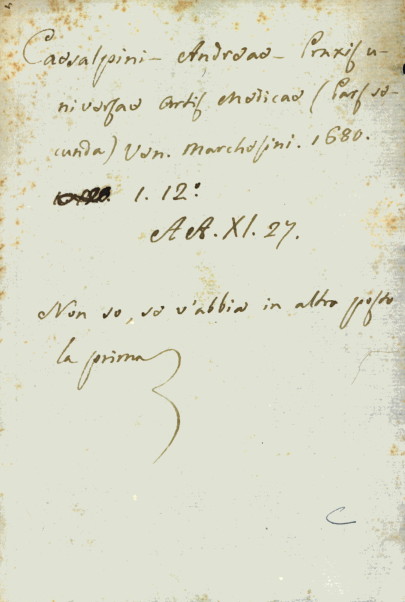 Caesalpini - Andreae - Praxis u-
niversae Artis Medicae (Pars se-
cunda) Ven. Marchesini. 1680.
1. 12.°
AA. XI. 27.
Non so, se v'abbia in altro posto
la prima
C